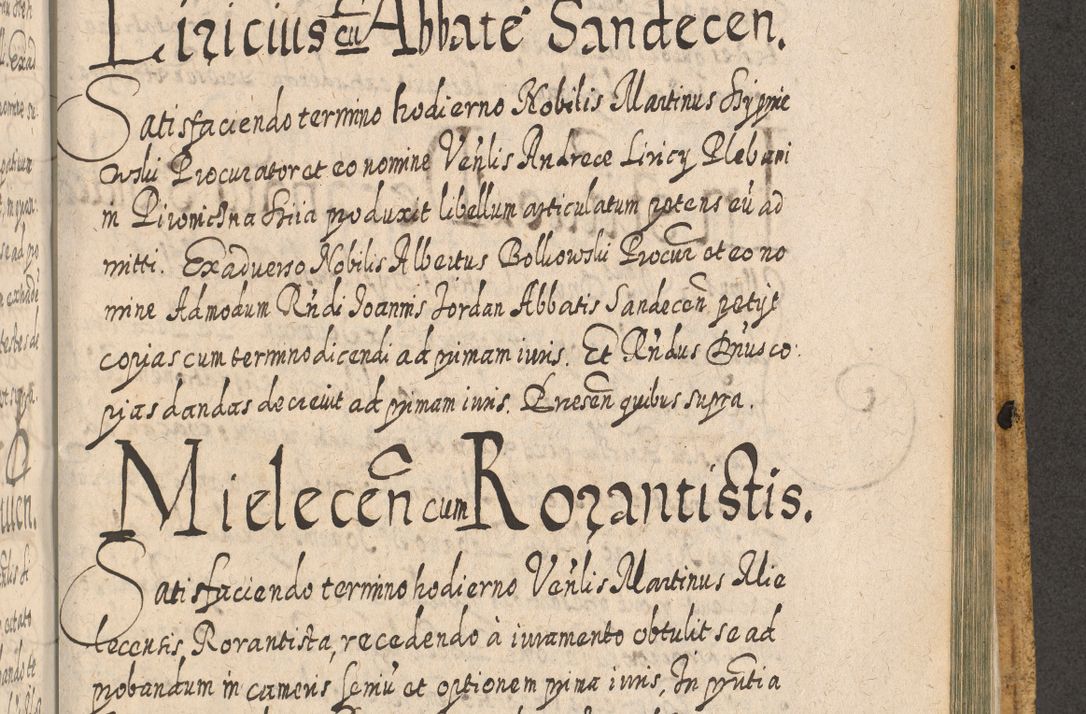 Liricius cū Abbate Sandecen.
Satisfaciendo termino hodierno Nobilis Martinus Hrypnie
owski Procurator et eo nomine Veñlis Andreæ Liricy Plebani
in Piwnicsna Hria produxit libellum articulatum petens eū ad
mitti. Exadverso Nobilis Albertus Bolkowski Procur̃ et eo no
mine Admodum Rñdi Joannis Jordan Abbatis Sandeceñ petyt
copias cum termino dicendi ad primam iuris. Et Rñdus Dñus co
pias dandas decrevit ad primam iuris. Præseñ quibus supra.
Mieleceñ cum Rorantistis.
Satisfaciendo termino hodierno Veñlis Martinus Mie
lecensis, Rorantista, recedendo à iuramento obtulit se ad
probandum in cameris semū et optionem prima iuris, In pr̃ntia